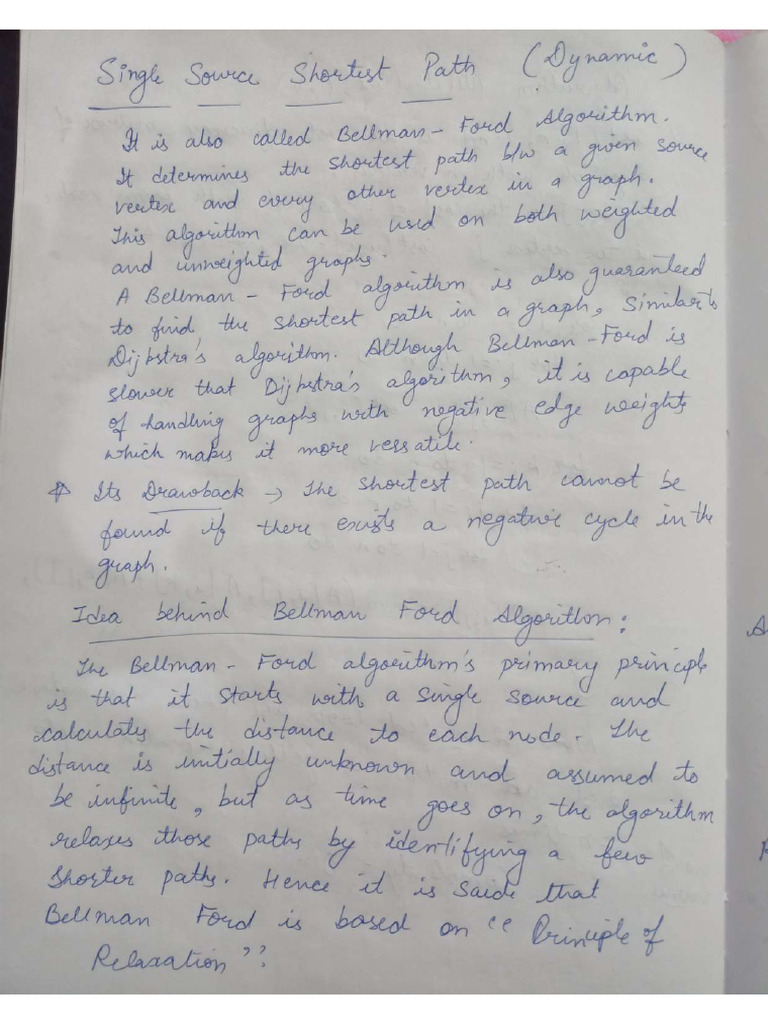 Single Source Shortest Path (Dynamic)
It is also called Bellman-Ford Algorithm.
It determines the shortest path b/w a given source
vertex and every other vertex in a graph.
This algorithm can be used on both weighted
and unweighted graphs.
A Bellman-Ford algorithm is also guaranteed
to find the shortest path in a graph, similar to
Dijkstra's algorithm. Although Bellman-Ford is
slower that Dijkstra's algorithm, it is capable
of handling graphs with negative edge weights
which makes it more versatile.
* Its Drawback → The shortest path cannot be
found if there exists a negative cycle in the
graph.
Idea behind Bellman Ford Algorithm:
The Bellman-Ford algorithm's primary principle
is that it starts with a single source and
calculates the distance to each node. The
distance is initially unknown and assumed to
be infinite, but as time goes on, the algorithm
relaxes those paths by identifying a few
shorter paths. Hence it is saide that
Bellman Ford is based on "Principle of
Relaxation".